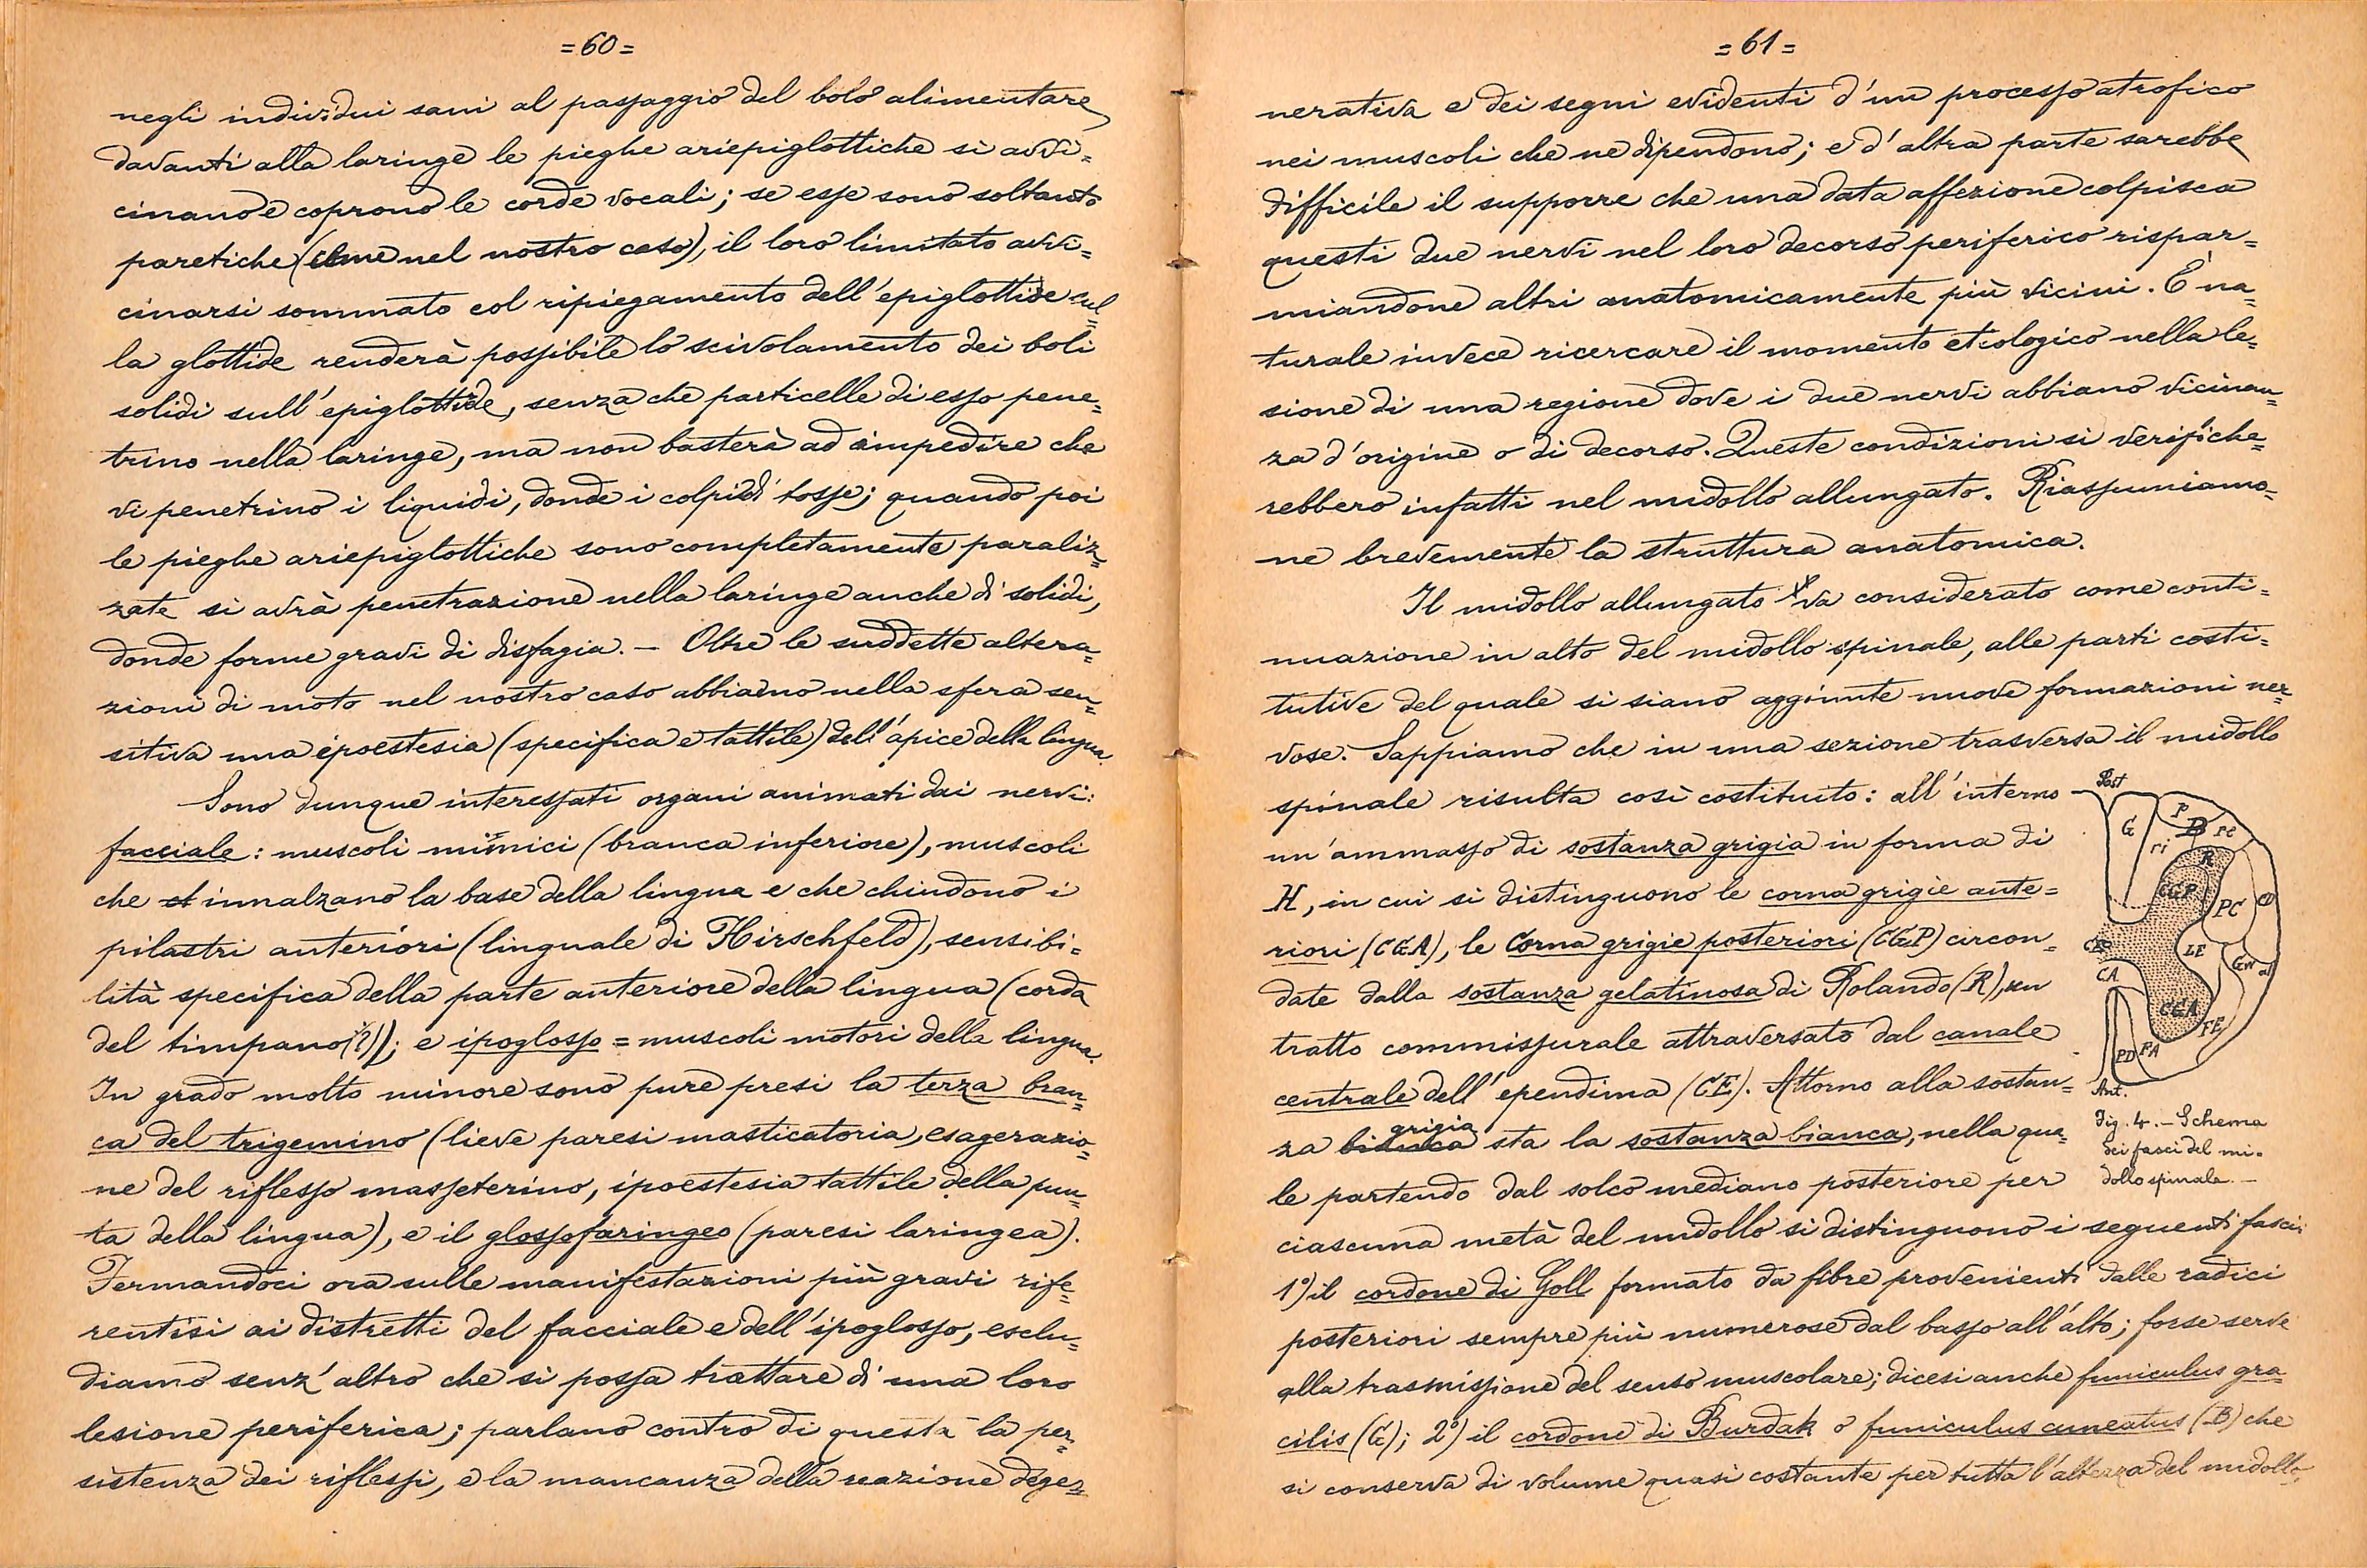 =60=
negli individui sani al passaggio del bolo alimentare
davanti alla laringe le pieghe ariepiglottiche si avvi=
cinano e coprono le corde vocali; se esse sono soltanto
paretiche (come nel nostro caso), il loro limitato avvi=
cinarsi sommato col ripiegamento dell'epiglottide sul=
la glottide renderà possibile lo scivolamento dei boli
solidi sull'epiglottide, senza che particelle di esso pene=
trino nella laringe, ma non basterà ad impedire che
vi penetrino i liquidi, donde i colpi di tosse; quando poi
le pieghe ariepiglottiche sono completamente paraliz=
zate si avrà penetrazione nella laringe anche di solidi,
donde forme gravi di disfagia. — Oltre le suddette altera=
zioni di moto nel nostro caso abbiamo nella sfera sen=
sitiva una ipoestesia (specifica e tattile) dell'apice della lingua.
Sono dunque interessati organi animati dai nervi:
facciale: muscoli mimici (branca inferiore), muscoli
che innalzano la base della lingua e che chiudono i
pilastri anteriori (linguale di Hirschfeld), sensibi=
lità specifica della parte anteriore della lingua (corda
del timpano (?)); e ipoglosso = muscoli motori della lingua.
In grado molto minore sono pure presi la terza bran=
ca del trigemino (lieve paresi masticatoria, esagerazio=
ne del riflesso masseterino, ipoestesia tattile della pun=
ta della lingua), e il glossofaringeo (paresi laringea).
Fermandoci ora sulle manifestazioni più gravi rife=
rentisi ai distretti del facciale e dell'ipoglosso, esclu=
diamo senz'altro che si possa trattare di una loro
lesione periferica; parlano contro di questa la per=
sistenza dei riflessi, e la mancanza della reazione dege=
=61=
nerativa e dei segni evidenti d'un processo atrofico
nei muscoli che ne dipendono; e d'altra parte sarebbe
difficile il supporre che una data affezione colpisca
questi due nervi nel loro decorso periferico rispar=
miandone altri anatomicamente più vicini. È na=
turale invece ricercare il momento etiologico nella le=
sione di una regione dove i due nervi abbiano vicinan=
za d'origine o di decorso. Queste condizioni si verifiche=
rebbero infatti nel midollo allungato. Riassumiamo=
ne brevemente la struttura anatomica.
Il midollo allungato va considerato come conti=
nuazione in alto del midollo spinale, alle parti costi=
tutive del quale si siano aggiunte nuove formazioni ner=
vose. Sappiamo che in una sezione trasversa il midollo
spinale risulta così costituito: all'interno
un'ammasso di sostanza grigia in forma di
H, in cui si distinguono le corna grigie ante=
riori (CGA), le corna grigie posteriori (CGP) circon=
date dalla sostanza gelatinosa di Rolando (R), un
tratto commissurale attraversato dal canale
centrale dell'ependima (CE). Attorno alla sostan=
za bianca grigia sta la sostanza bianca, nella qua=
le partendo dal solco mediano posteriore per
ciascuna metà del midollo si distinguono i seguenti fasci:
1º) il cordone di Goll formato da fibre provenienti dalle radici
posteriori sempre più numerose dal basso all'alto; forse serve
alla trasmissione del senso muscolare; dicesi anche funiculus gra=
cilis (G); 2º) il cordone di Burdak o funiculus cuneatus (B) che
si conserva di volume quasi costante per tutta l'altezza del midollo,
Post
G
P
B
Pe
ri
R
CGP
PC
CD
CE
LE
Gw
al
CA
CGA
FE
PD
FA
Ant.
Fig. 4. — Schema
dei fasci del mi=
dollo spinale. —